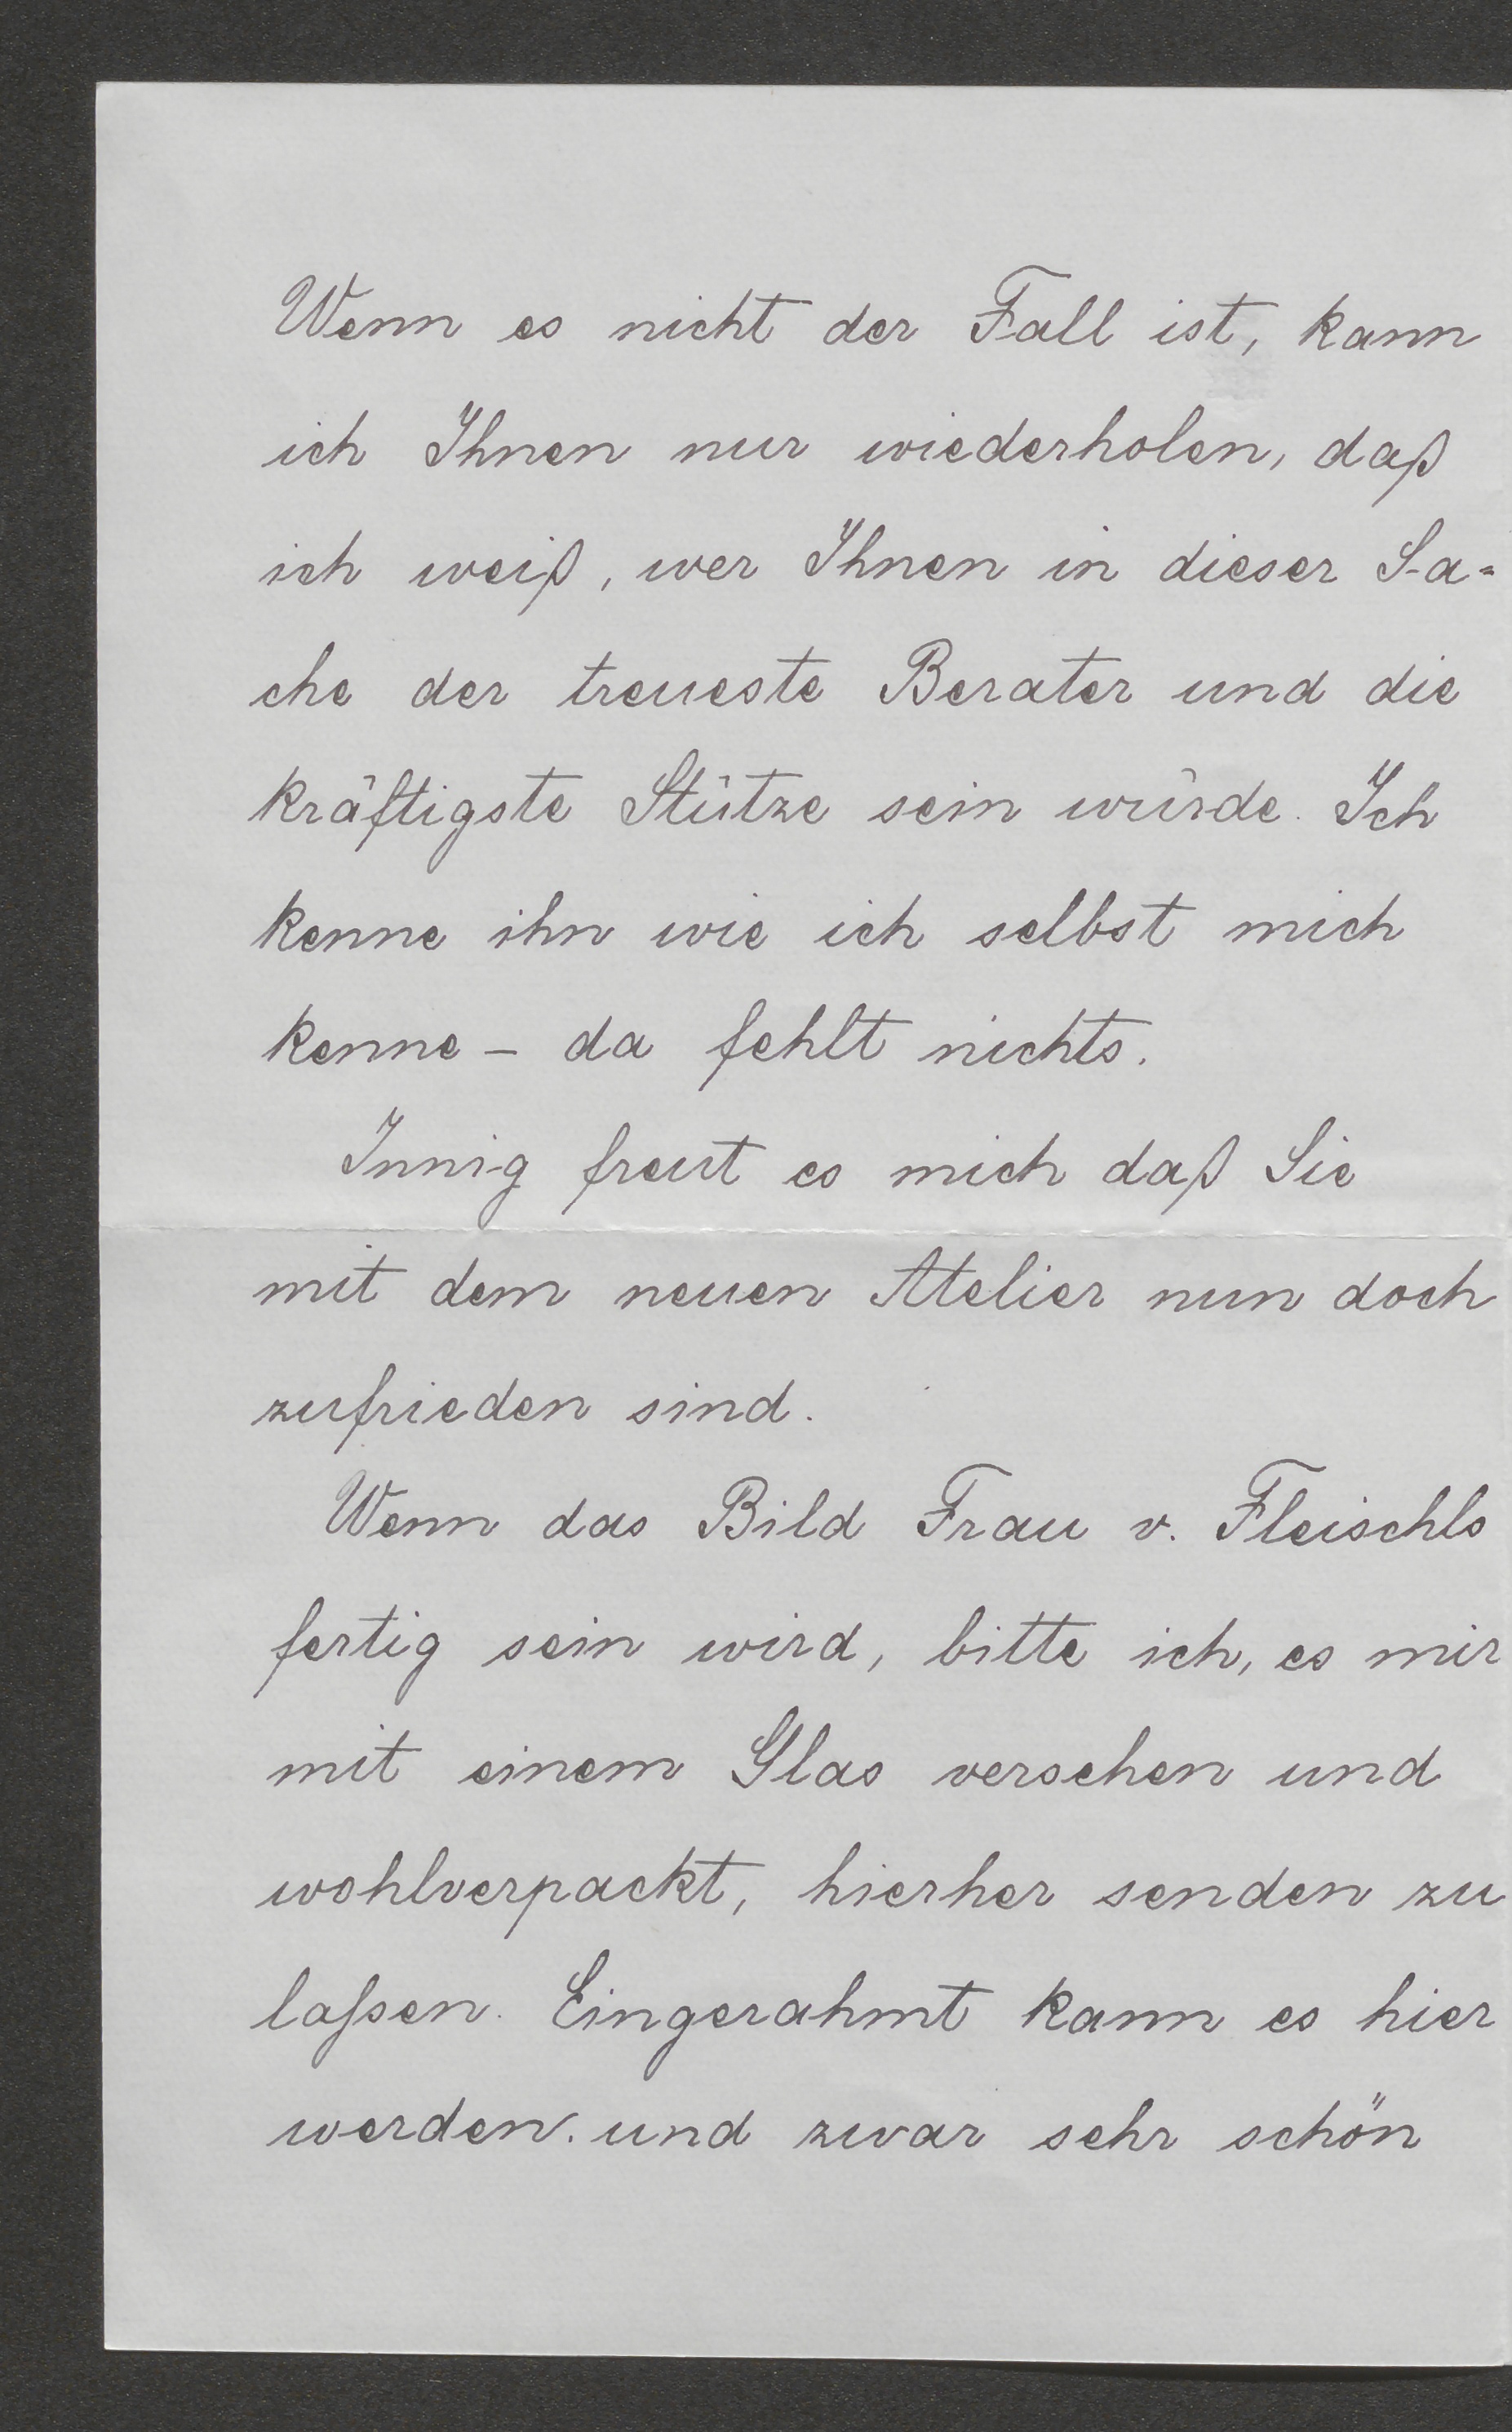 Wenn es nicht der Fall ist, kann
ich Ihnen nur wiederholen, daß
ich weiß, wer Ihnen in dieser Sa=
che der treueste Berater und die
kräftigste Stütze sein würde. Ich
kenne ihn wie ich selbst mich
kenne – da fehlt nichts.
Innig freut es mich daß Sie
mit dem neuen Atelier nun doch
zufrieden sind.
Wenn das Bild Frau v. Fleischls
fertig sein wird, bitte ich, es mir
mit einem Glas versehen und
wohlverpackt, hierher senden zu
laßen. Eingerahmt kann es hier
werden. und zwar sehr schön